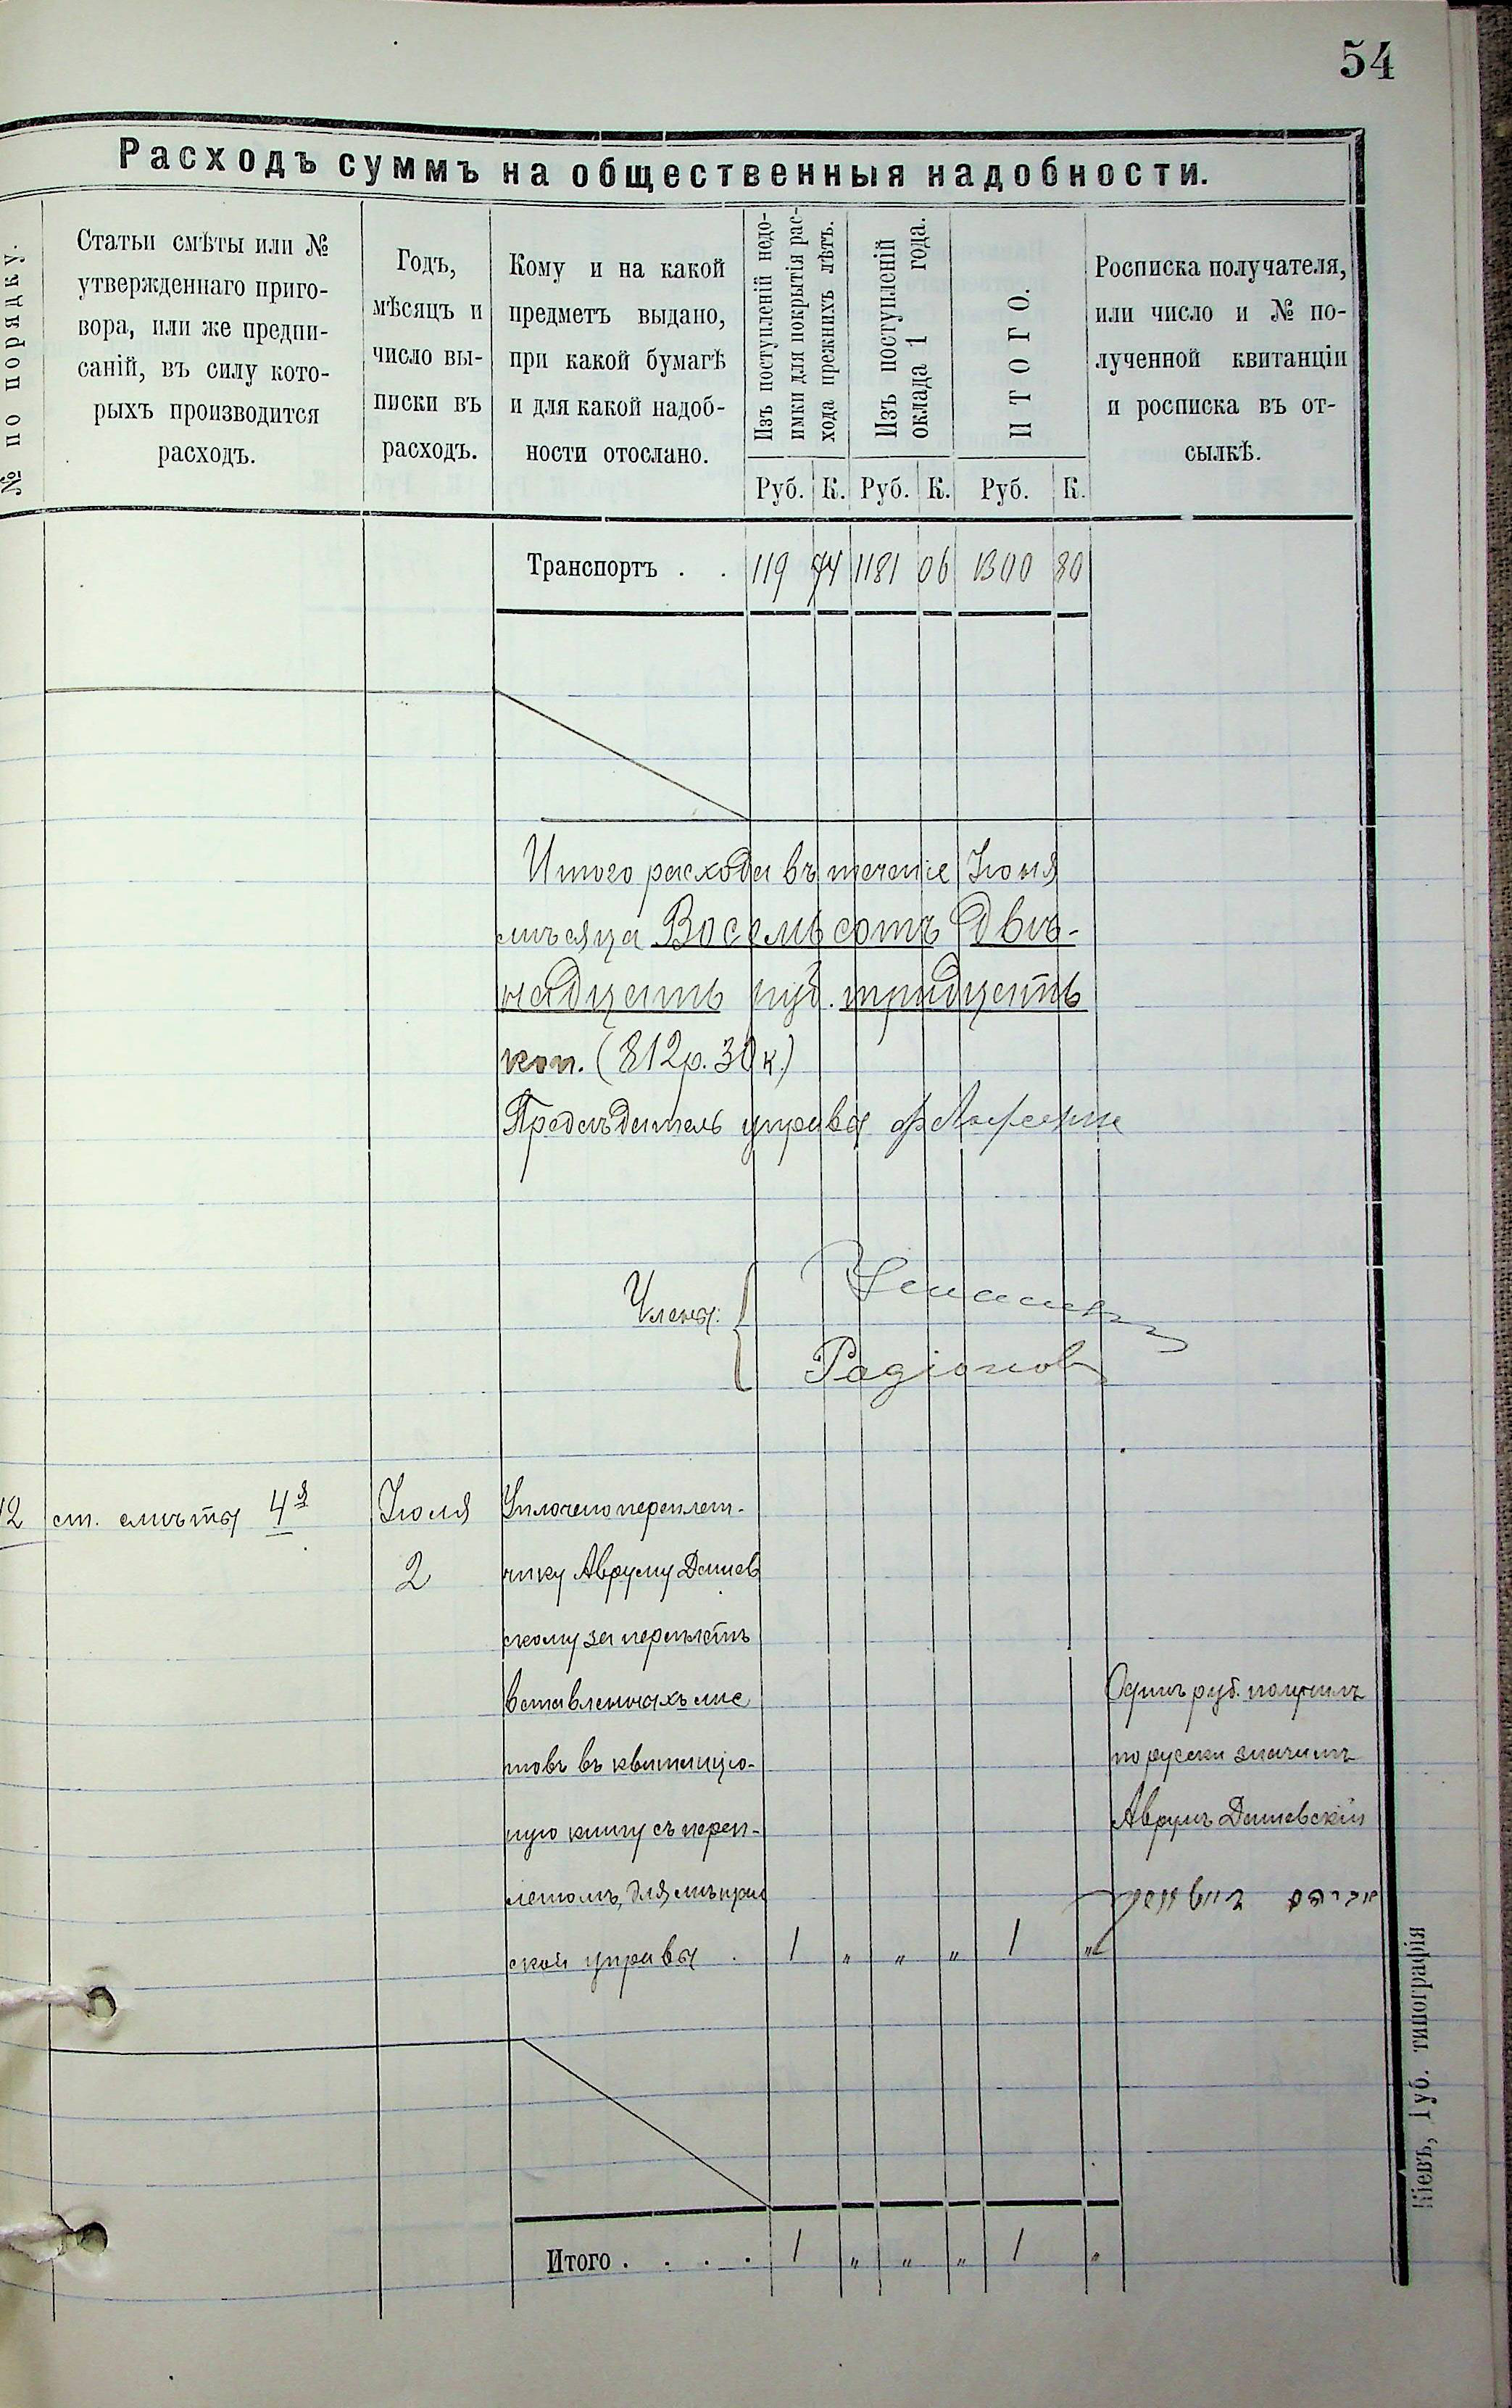 54
Расходъ суммъ на общественныя надобности.
№ по порядку.
Статьи смѣты или №
утвержденнаго приго-
вора, или же предпи-
саній, въ силу кото-
рыхъ производится
расходъ.
Годъ,
мѣсяцъ и
число вы-
писки въ
расходъ.
Кому и на какой
предметъ выдано,
при какой бумагѣ
и для какой надоб-
ности отослано.
Изъ поступленій недо-
имки для покрытія рас-
хода прежнихъ лѣтъ.
Изъ поступленій
оклада 1 года.
ИТОГО.
Росписка получателя,
или число и № по-
лученной квитанціи
и росписка въ от-
сылкѣ.
Руб. К. Руб. К. Руб. К.
Транспортъ . . 119 74 1181 06 1300 80
Итого расхода въ теченіе Іюня
мѣсяца Восемьсотъ двѣ-
надцать руб. тридцать
коп. (812 р. 30 к.)
Предсѣдатель управы
Члены:
Радіоновъ
12 ст. смѣты 4я Іюля
2
Уплочено переплет-
чику Авруму Дашев
скому за переплетъ
вставленныхъ лис
товъ въ квитанціо-
ную книгу съ переп-
летомъ, для мѣщан
ской управы . 1 „ „ „ 1 „
Одинъ руб. получилъ
по русски значитъ
Аврумъ Дашевскій
אברהם דאשעווסקי
Итого . . . . 1 „ „ „ 1 „
Кіевъ, Губ. типографія